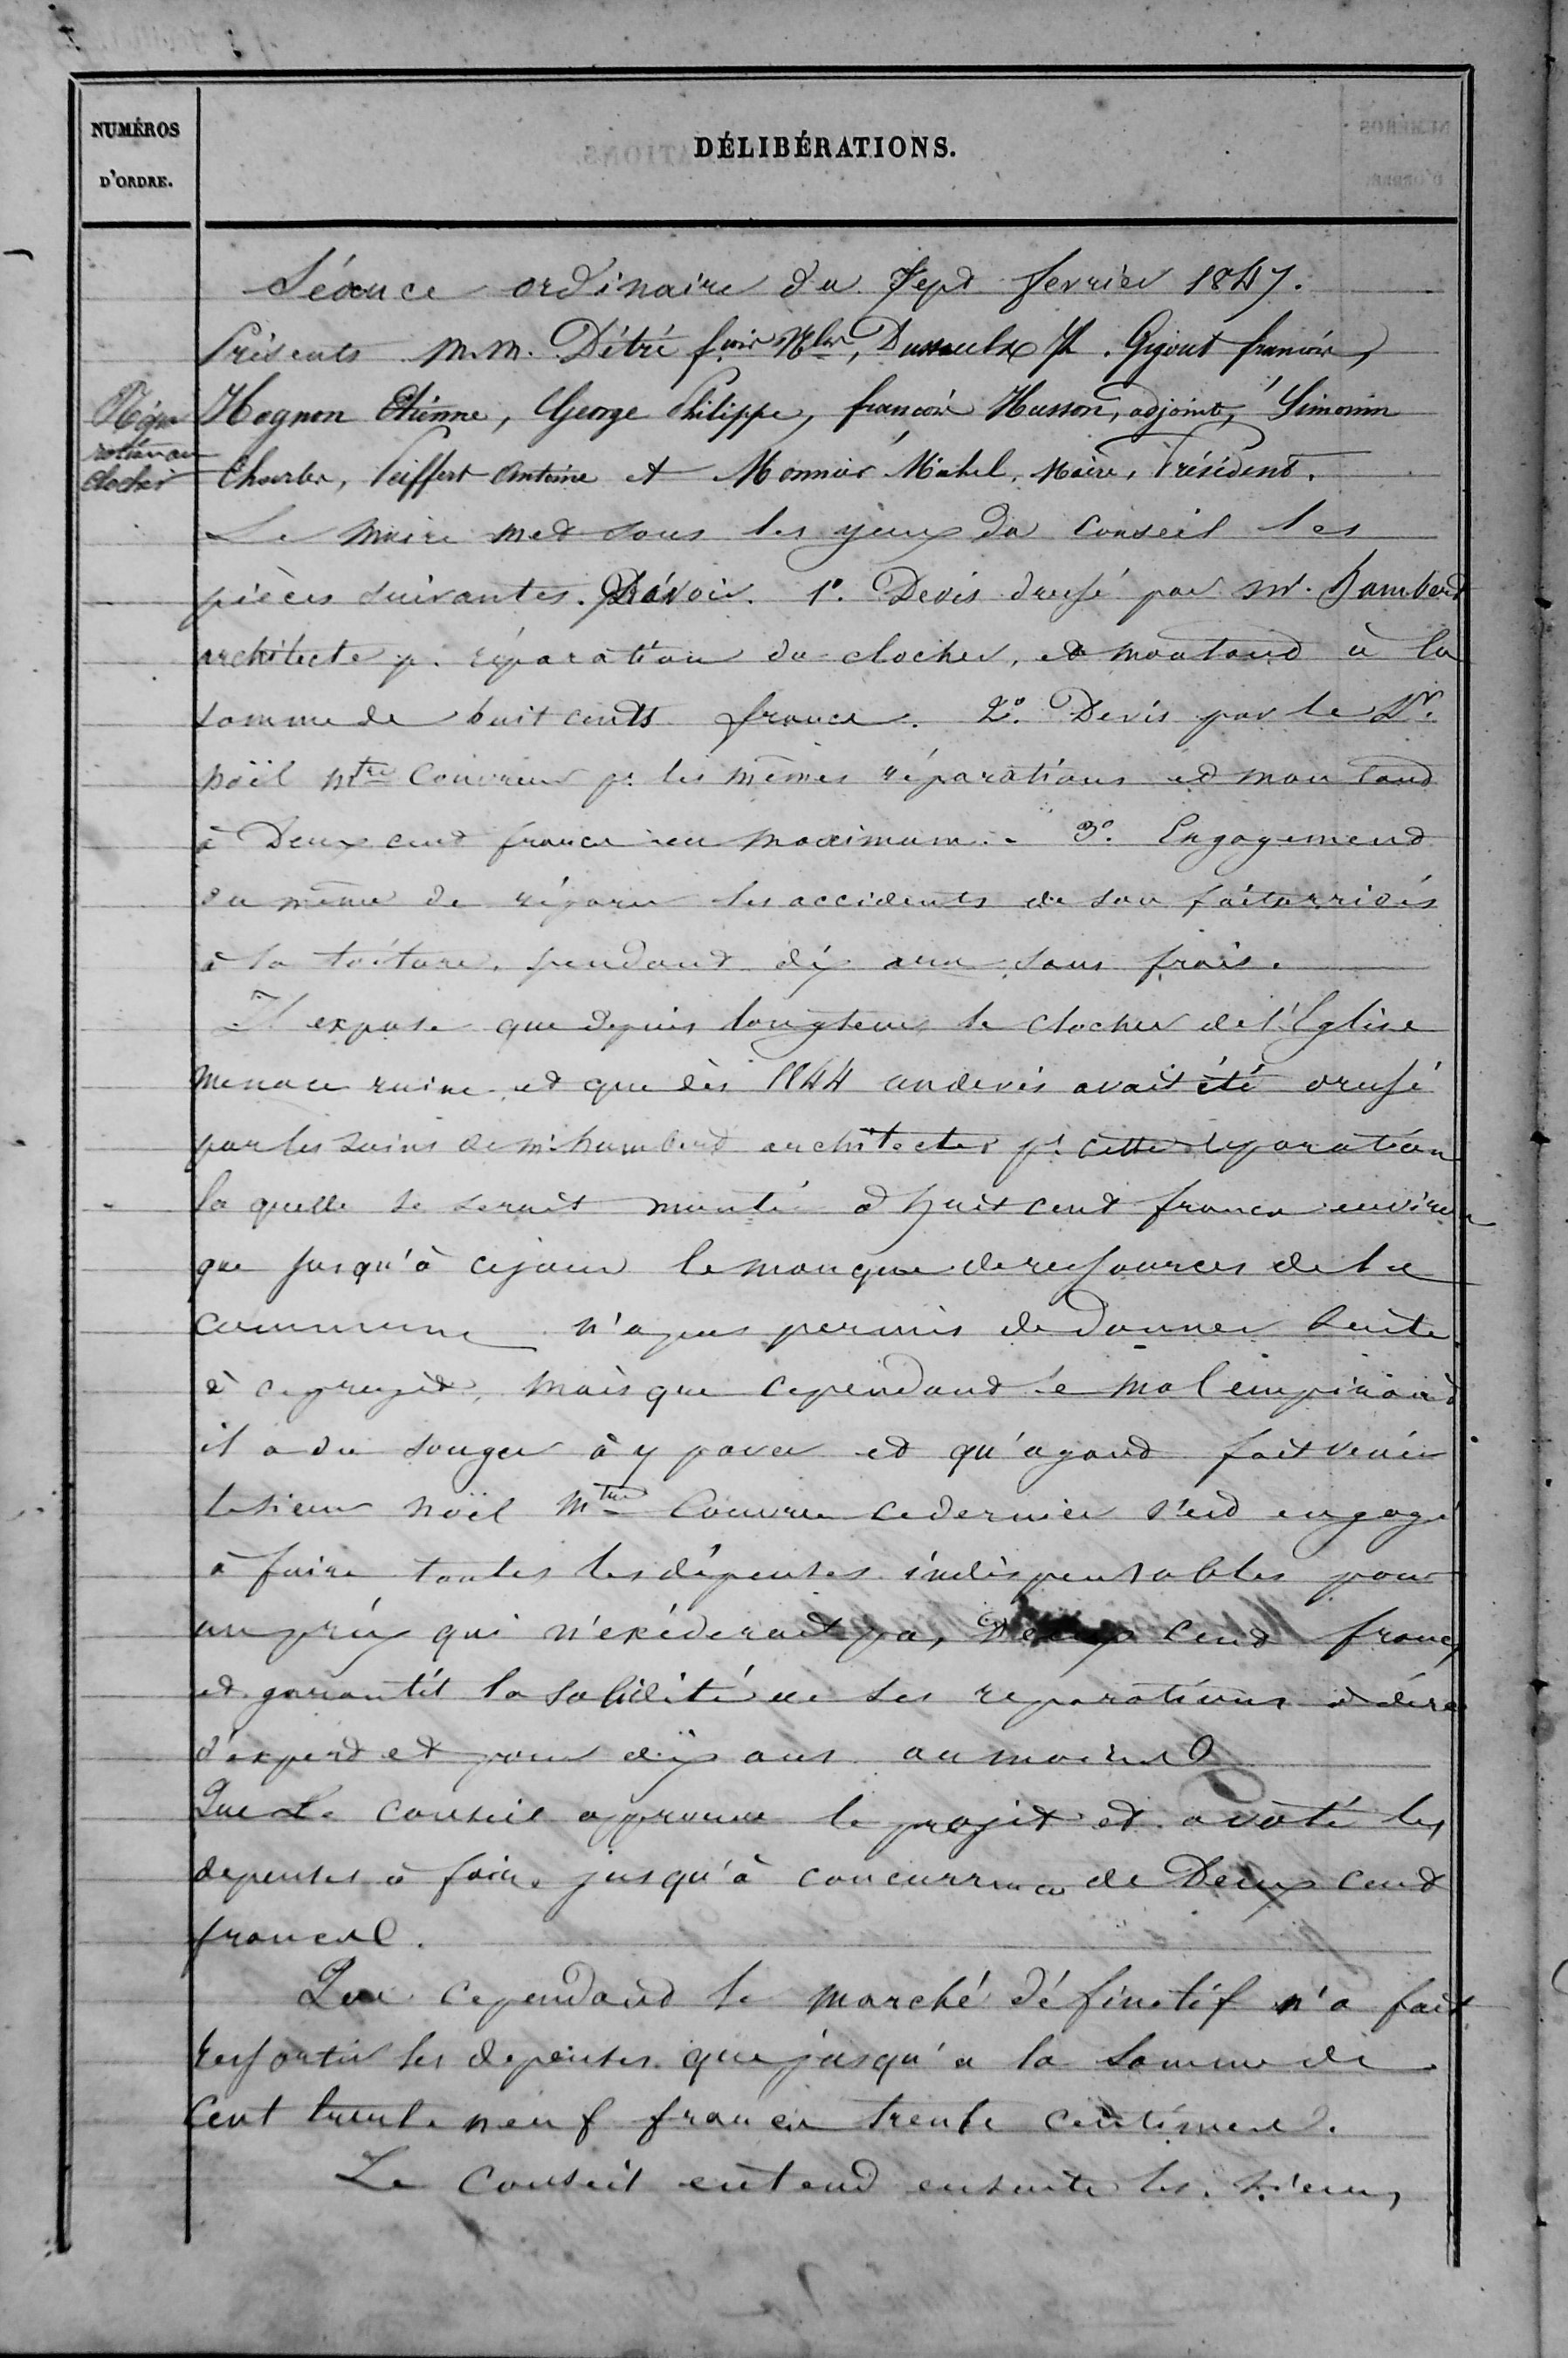 NUMÉROS
D'ORDRE.
DÉLIBÉRATIONS.
Séance ordinaire du Sept fevrier 1847.
Présents M.M. Détré Dussaulx Gigout francois,
Répa
ration au
clocher
Hognon Etienne, George Philippe, francois Husson, adjoint, Simonin
Charles, Peiffert Antoine et Monnier Michel, Maire, Président.
Le Maire met sous les yeux du Conseil les
pièces suivantes. Savoir. 1°. Devis dressé par Mr. humbert
architecte pr. réparation du clocher, et montant à la
somme de huit cents francs. 2°. Devis par le Sr.
Noël Mtre Couvreur pr. les mêmes réparations et montant
à Deux cent francs au maximum. 3°. Engagement
du même de réparer les accidents de son fait arrivés
à la toiture, pendant dix ans, sans frais.
Il expose que depuis longtems le clocher de l'Eglise
menace ruine et que dès 1844 un devis avait été dressé
par les soins de Mr. humbert architecte pr. cette réparation
la quelle se serait montée à huit cent francs environ
que jusqu'à ce jour le manque de ressources de la
commune n'a pas permis de donner suite
à ce projet, mais que cependant le mal empirant
il a du songer à y parer et qu'ayant fait venir
le sieur Noël Mtre Couvreur ce dernier s'est engagé
à faire toutes les dépenses indispensables pour
un prix qui n'exéderait pas Deux cent francs
et garantit la solidité de ses reparations à dire
d'expert et pour dix ans au moins
Que le Conseil approuva le projet et a voté les
depenses à faire jusqu'à concurrence de Deux cent
francs.
Que cependant le marché définitif n'a fait
ressortir les depenses que jusqu'a la somme de
Cent trente neuf francs trente centimes.
Le Conseil entend ensuite les sieurs